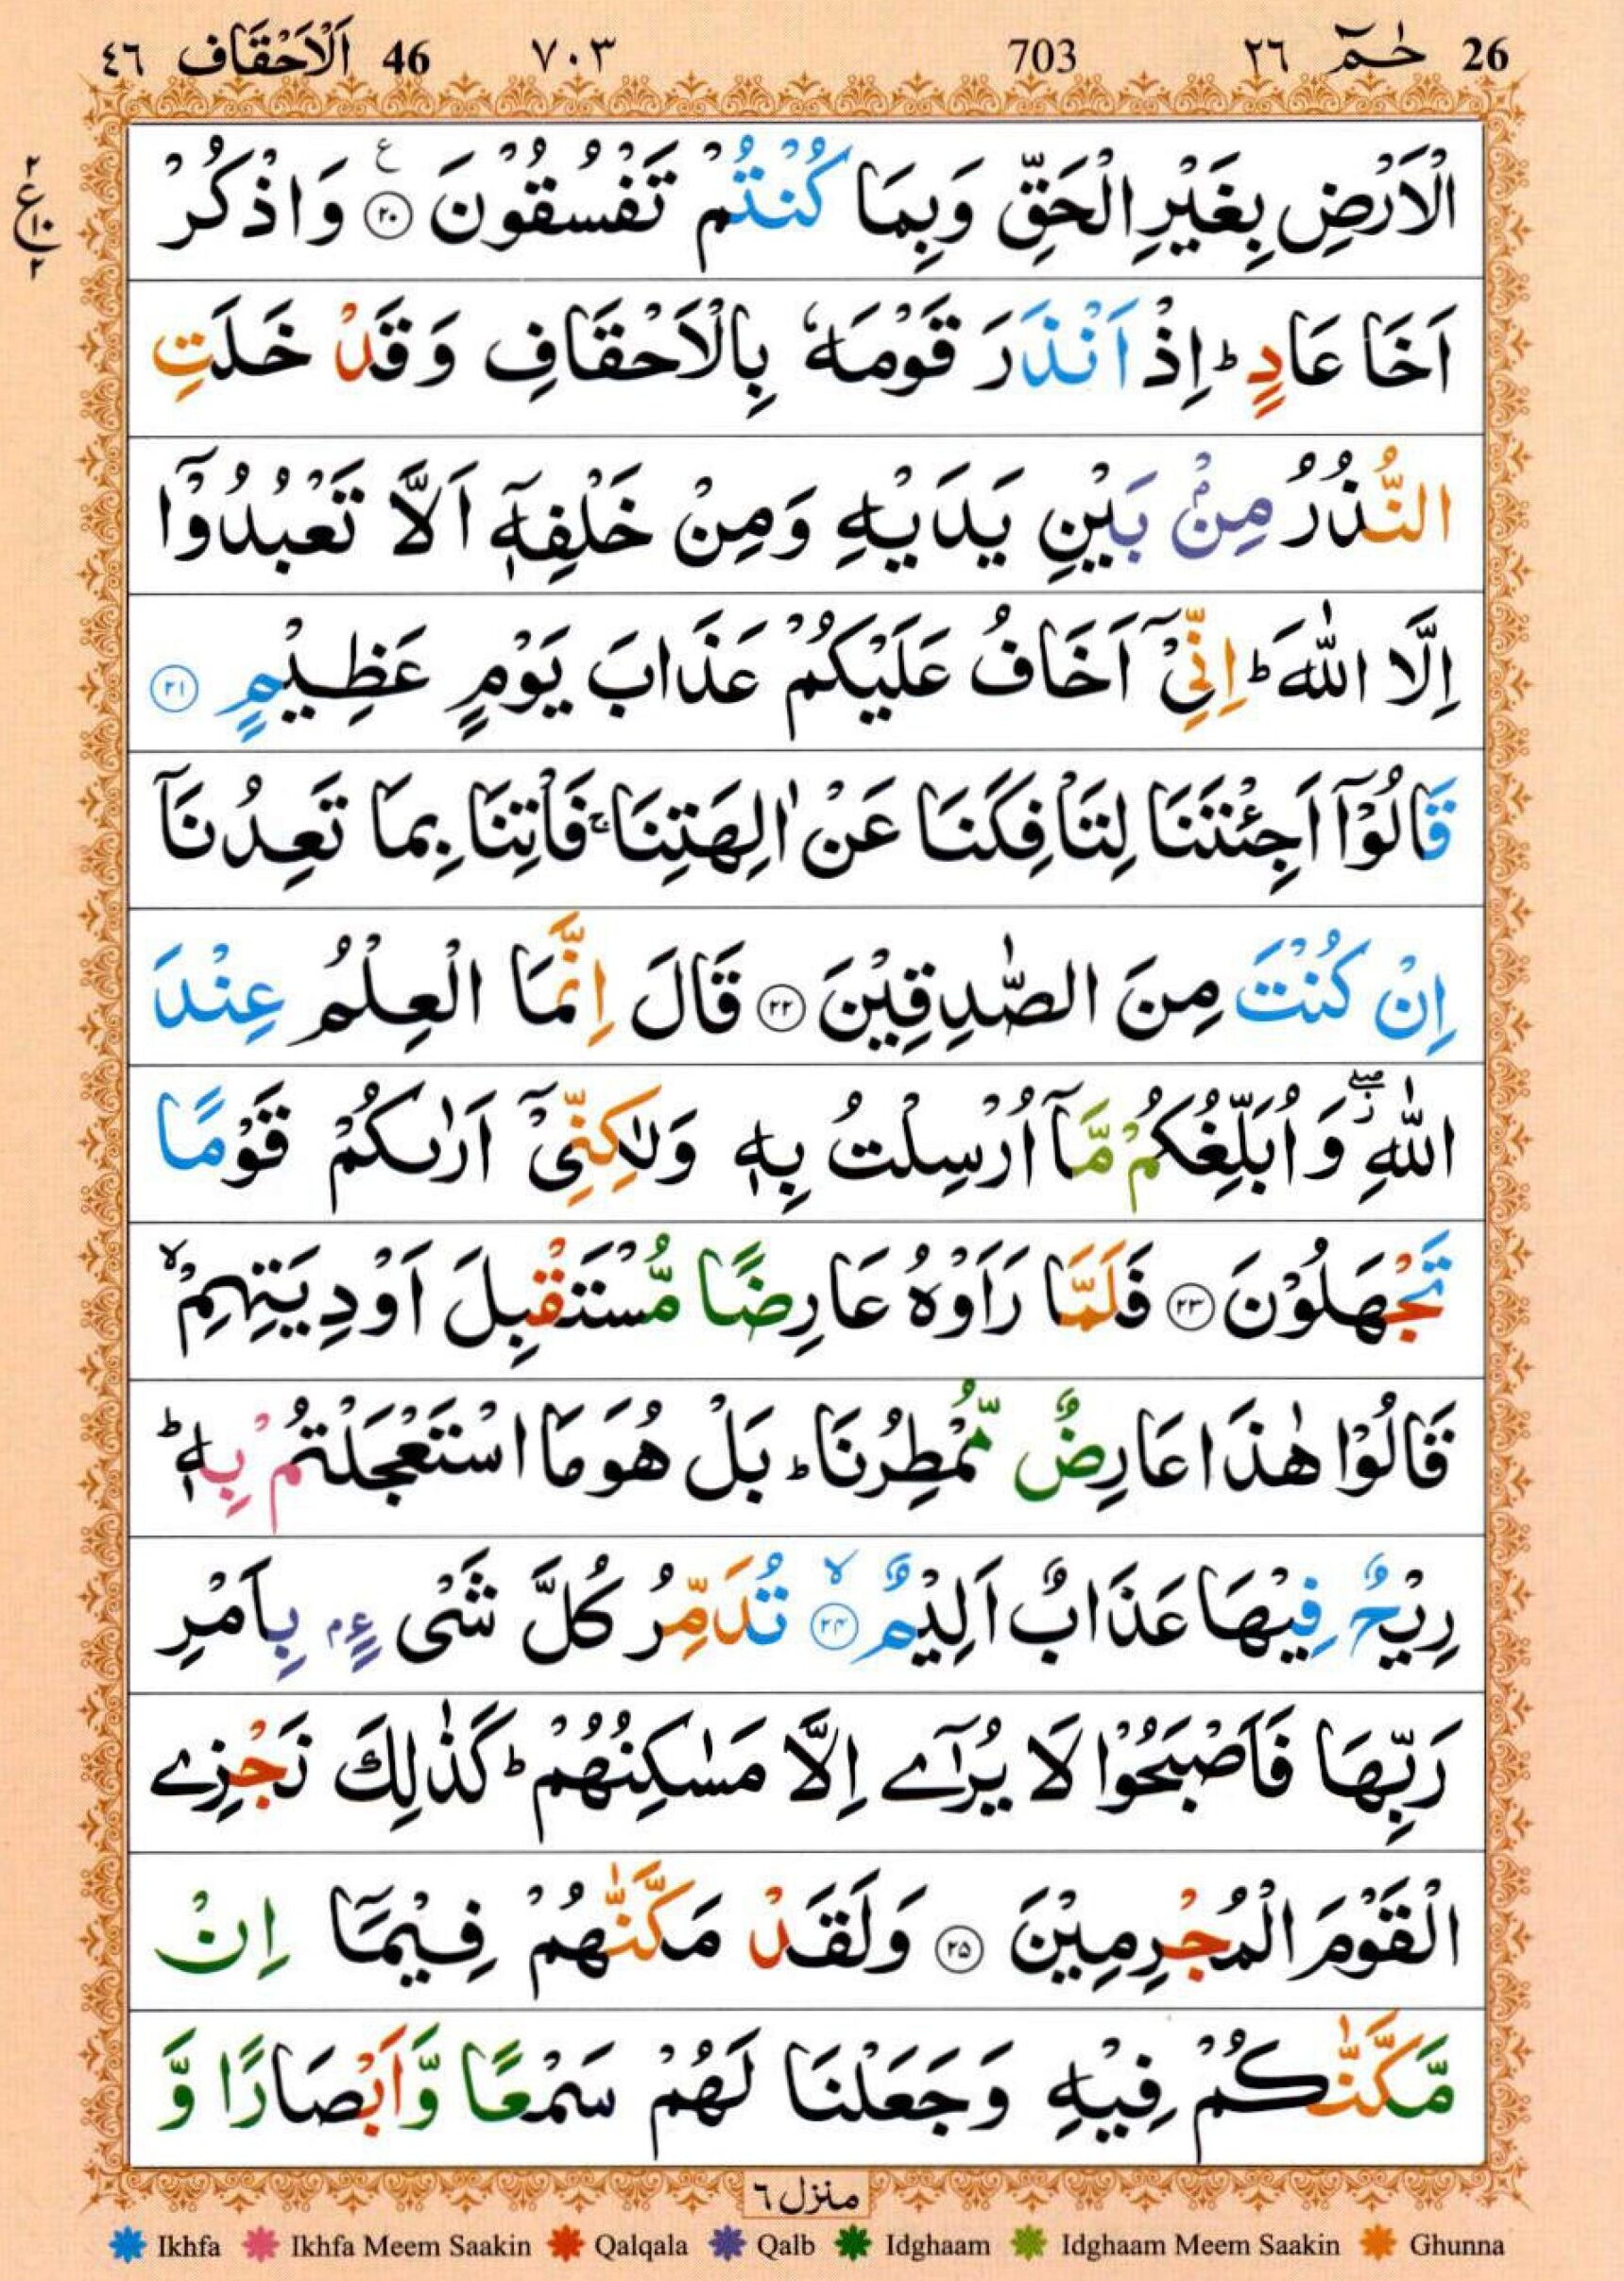 26 حٰمٓ ٢٦ 703 ٧٠٣ 46 اَلْاَحْقَاف ٤٦
الْاَرْضِ بِغَيْرِ الْحَقِّ وَبِمَا كُنْتُمْ تَفْسُقُوْنَ ۧ ﴿٢٠﴾ وَاذْكُرْ
٢ ع ١٠ ٢
اَخَا عَادٍ ؕ اِذْ اَنْذَرَ قَوْمَهٗ بِالْاَحْقَافِ وَقَدْ خَلَتِ
النُّذُرُ مِنْۢ بَيْنِ يَدَيْهِ وَمِنْ خَلْفِهٖۤ اَلَّا تَعْبُدُوْۤا
اِلَّا اللّٰهَ ؕ اِنِّيْۤ اَخَافُ عَلَيْكُمْ عَذَابَ يَوْمٍ عَظِيْمٍ ﴿٢١﴾
قَالُوْۤا اَجِئْتَنَا لِتَاْفِكَنَا عَنْ اٰلِهَتِنَا ۚ فَاْتِنَا بِمَا تَعِدُنَاۤ
اِنْ كُنْتَ مِنَ الصّٰدِقِيْنَ ﴿٢٢﴾ قَالَ اِنَّمَا الْعِلْمُ عِنْدَ
اللّٰهِ ۖؗ وَاُبَلِّغُكُمْ مَّاۤ اُرْسِلْتُ بِهٖ وَلٰكِنِّيْۤ اَرٰىكُمْ قَوْمًا
تَجْهَلُوْنَ ﴿٢٣﴾ فَلَمَّا رَاَوْهُ عَارِضًا مُّسْتَقْبِلَ اَوْدِيَتِهِمْ ۙ
قَالُوْا هٰذَا عَارِضٌ مُّمْطِرُنَا ؕ بَلْ هُوَ مَا اسْتَعْجَلْتُمْ بِهٖ ؕ
رِيْحٌ فِيْهَا عَذَابٌ اَلِيْمٌ ۙ ﴿٢٤﴾ تُدَمِّرُ كُلَّ شَيْءٍۭ بِاَمْرِ
رَبِّهَا فَاَصْبَحُوْا لَا يُرٰۤى اِلَّا مَسٰكِنُهُمْ ؕ كَذٰلِكَ نَجْزِي
الْقَوْمَ الْمُجْرِمِيْنَ ﴿٢٥﴾ وَلَقَدْ مَكَّنّٰهُمْ فِيْمَاۤ اِنْ
مَّكَّنّٰكُمْ فِيْهِ وَجَعَلْنَا لَهُمْ سَمْعًا وَّاَبْصَارًا وَّ
منزل ٦
Ikhfa Ikhfa Meem Saakin Qalqala Qalb Idghaam Idghaam Meem Saakin Ghunna